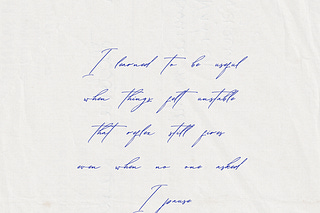 I learned to be useful
when things felt unstable
that reflex still fires
even when no one asked
I pause